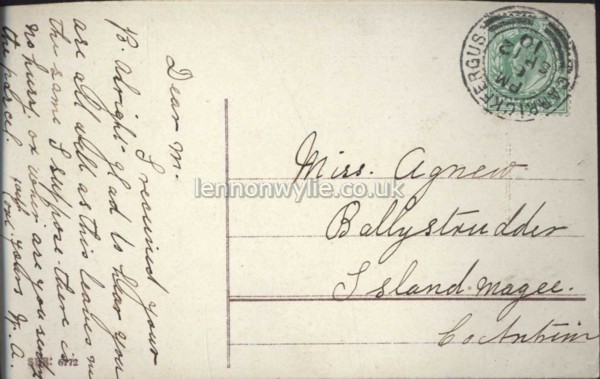 Dear M.
I received your
P.C. alright glad to hear you
are all well as this leaves me
the same I suppose there is
no hury, or when are you sending
the parcel.
yours
A.
Miss. Agnew.
Ballystrudder
Island magee.
Co Antrim
CARRICKFERGUS
PM
10
lennonwylie.co.uk
6172